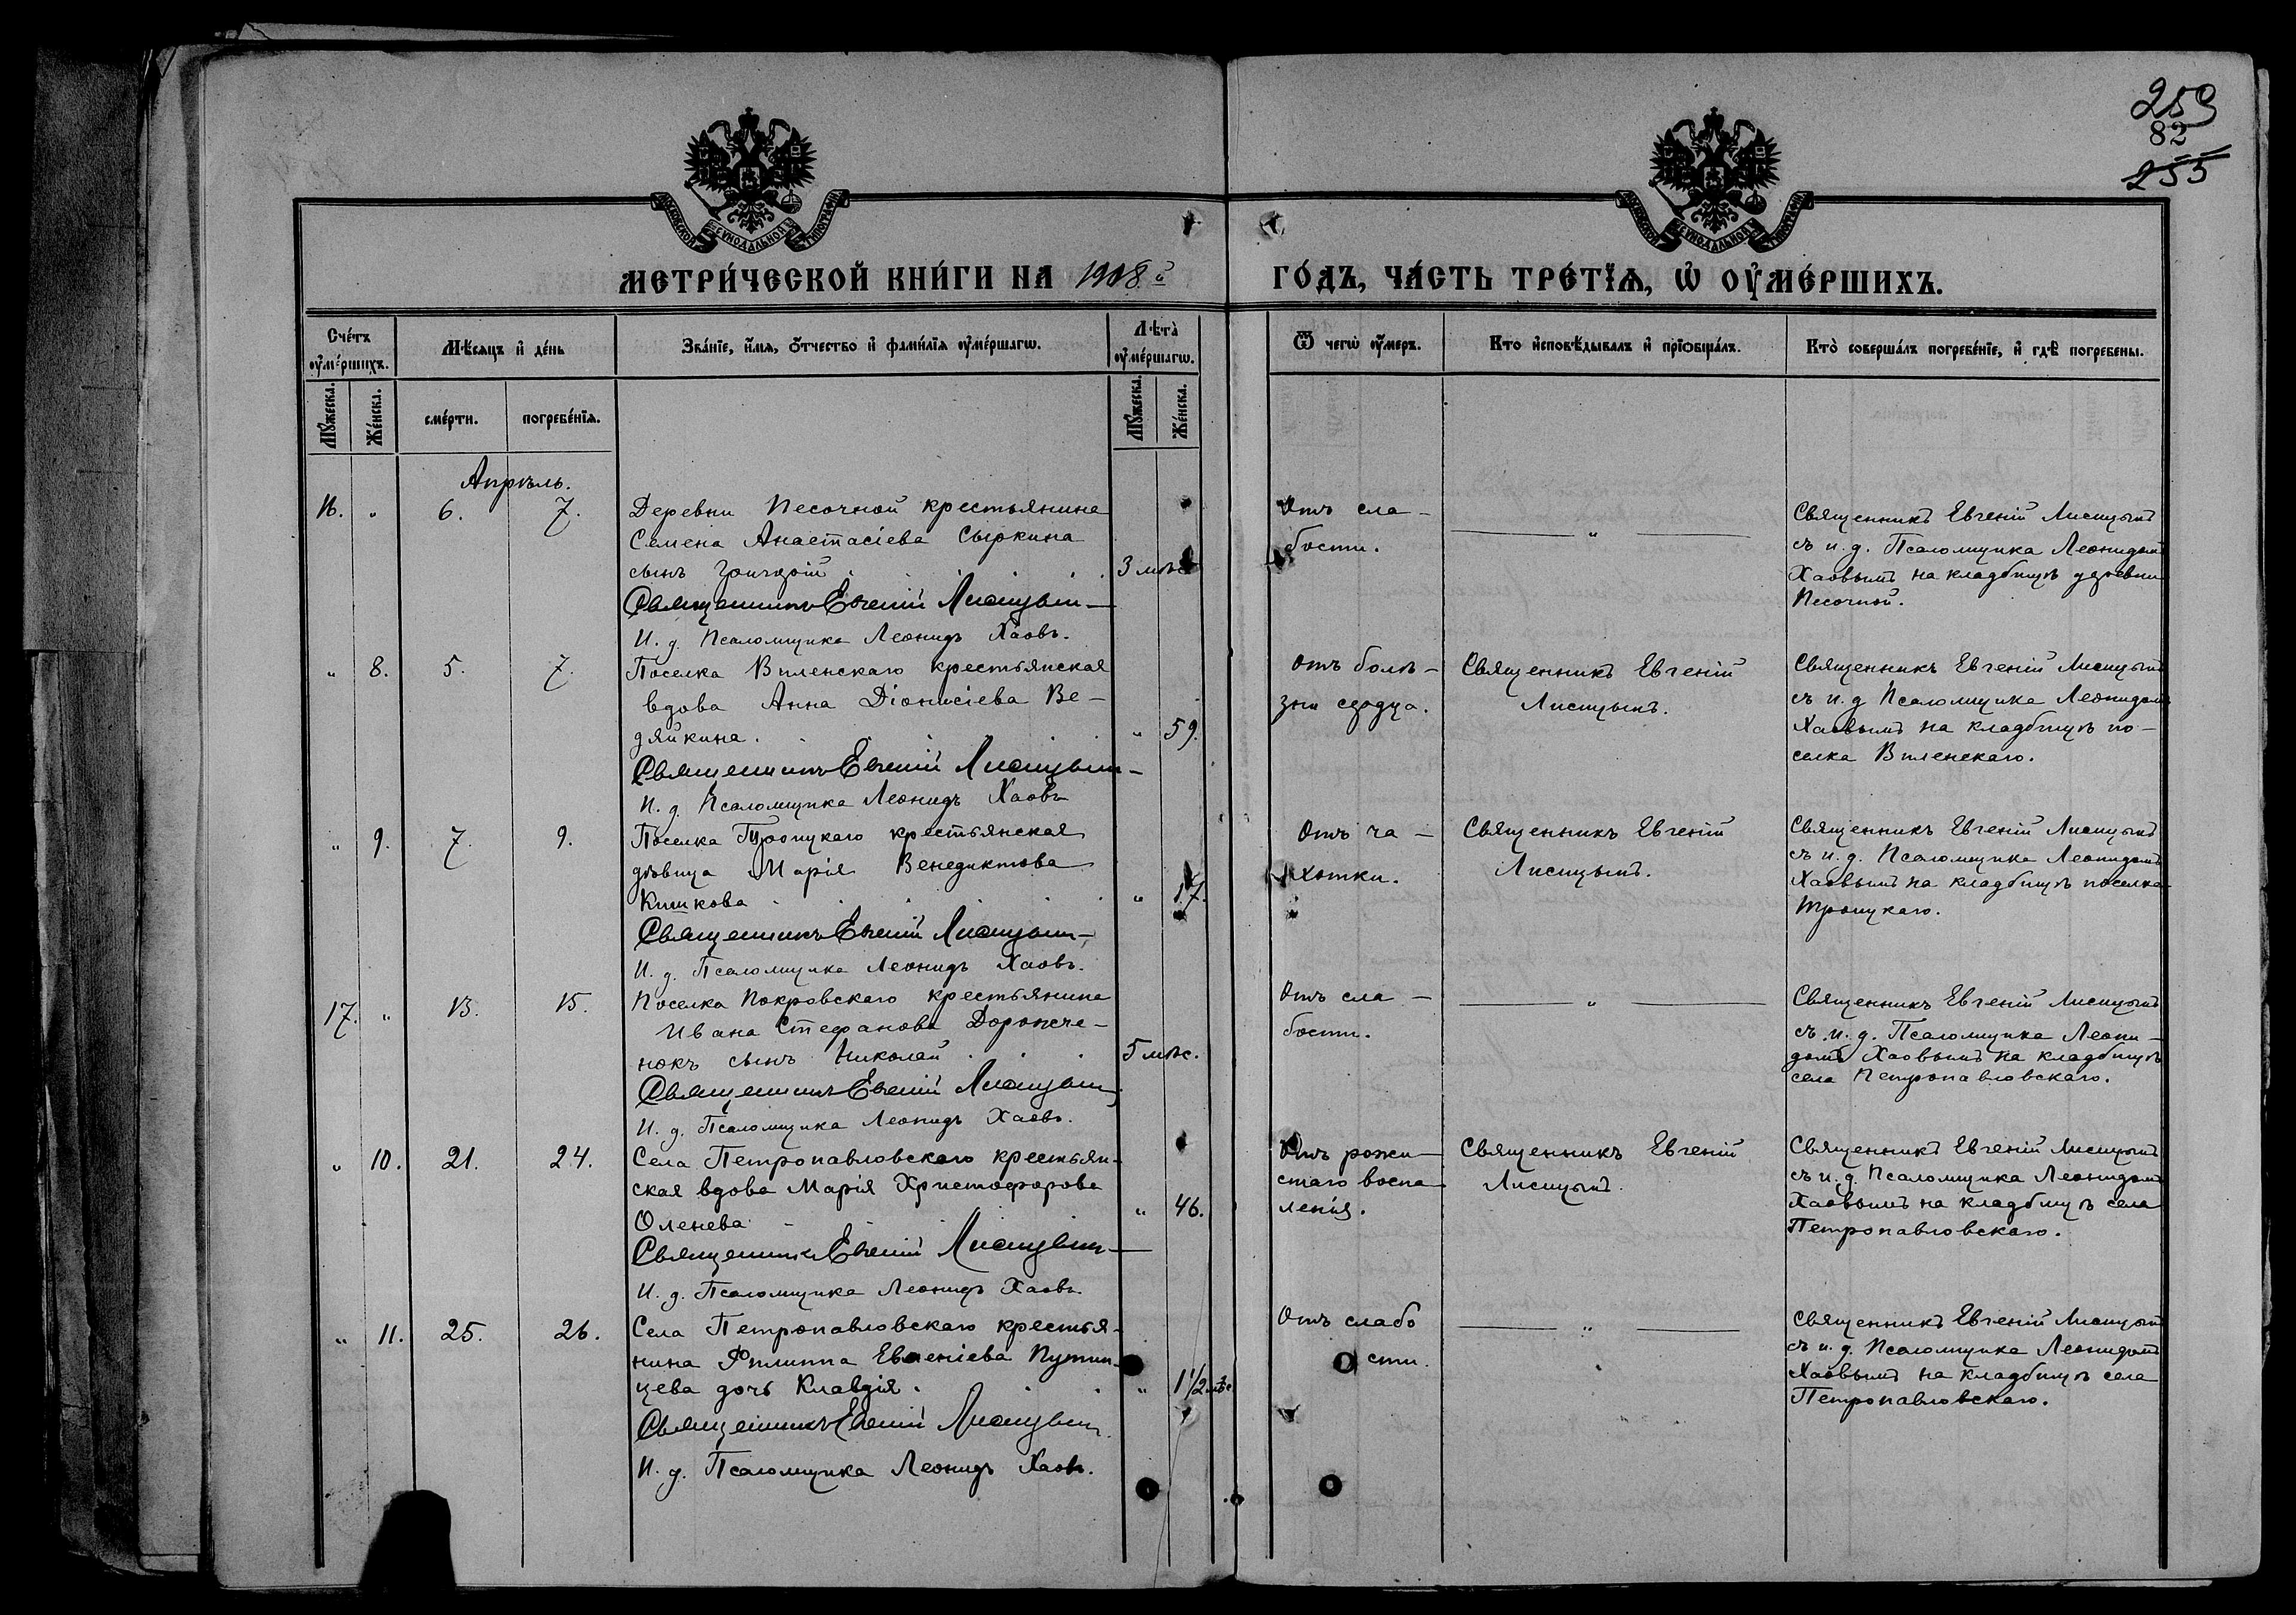 259
82
255
МОСКОВСКОЙ СѴНОДАЛЬНОЙ ТИПОГРАФІИ
МОСКОВСКОЙ СѴНОДАЛЬНОЙ ТИПОГРАФІИ
МЕТРИ́ЧЕСКОЙ КНИ́ГИ НА 1908й ГО́ДЪ, ЧА́СТЬ ТРЕ́ТЇѦ, Ѡ҆ ОУ҆МЕ́РШИХЪ.
Сче́тъ оу҆ме́ршихъ.
Мѣ́сяцъ и҆ де́нь
Зва́нїе, и҆́мѧ, ѻ҆́тчество и҆ фами́лїѧ оу҆ме́ршагѡ.
Лѣ́та оу҆ме́ршагѡ.
Ѿ чегѡ̀ оу҆́меръ.
Кто̀ и҆сповѣ́дывалъ и҆ прїѡбща́лъ.
Кто̀ соверша́лъ погребе́нїе, и҆ гдѣ̀ погребены̀.
Мꙋ́жеска.
Же́нска.
сме́рти.
погребе́нїѧ.
Мꙋ́жеска.
Же́нска.
Апрѣль.
16. „ 6. 7. Деревни Песочной крестьянина
Семена Анастасіева Сыркина
сынъ Григорій 3 мѣс.
Священникъ Евгеній Лисицынъ
И. д. Псаломщика Леонидъ Хаовъ.
Отъ сла-
бости.
„
Священникъ Евгеній Лисицынъ
съ и. д. Псаломщика Леонидомъ
Хаовымъ на кладбищѣ деревни
Песочной.
„ 8. 5. 7. Поселка Виленскаго крестьянская
вдова Анна Діонисіева Ве-
дяйкина. „ 59.
Священникъ Евгеній Лисицынъ
И. д. Псаломщика Леонидъ Хаовъ
Отъ болѣ-
зни сердца.
Священникъ Евгеній
Лисицынъ.
Священникъ Евгеній Лисицынъ
съ и. д Псаломщика Леонидомъ
Хаовымъ на кладбищѣ по-
селка Виленскаго.
„ 9. 7. 9. Поселка Троицкаго крестьянская
дѣвица Марія Венедиктова
Кишкова „ 17.
Священникъ Евгеній Лисицынъ
И. д. Псаломщика Леонидъ Хаовъ.
Отъ ча-
хотки.
Священникъ Евгеній
Лисицынъ.
Священникъ Евгеній Лисицынъ
съ и. д. Псаломщика Леонидомъ
Хаовымъ на кладбищѣ поселка
Троицкаго.
17. „ 13. 15. Поселка Покровскаго крестьянина
Ивана Стефанова Дороже-
нокъ сынъ Николай 5 мѣс.
Священникъ Евгеній Лисицынъ
И. д. Псаломщика Леонидъ Хаовъ.
Отъ сла-
бости.
„
Священникъ Евгеній Лисицынъ
съ и. д. Псаломщика Леони-
домъ Хаовымъ на кладбищѣ
села Петропавловскаго.
„ 10. 21. 24. Села Петропавловскаго крестьян-
ская вдова Марія Христофорова
Оленева „ 46.
Священникъ Евгеній Лисицынъ
И. д. Псаломщика Леонидъ Хаовъ
Отъ рожи-
стаго воспа
ленія.
Священникъ Евгеній
Лисицынъ.
Священникъ Евгеній Лисицынъ
съ и. д. Псаломщика Леонидомъ
Хаовымъ на кладбищѣ села
Петропавловскаго.
„ 11. 25. 26. Села Петропавловскаго крестья-
нина Филиппа Евгеніева Путин-
цева дочь Клавдія. „ 1 1/2 мѣс
Священникъ Евгеній Лисицынъ
И. д. Псаломщика Леонидъ Хаовъ.
Отъ слабо
сти.
„
Священникъ Евгеній Лисицынъ
съ и. д. Псаломщика Леонидомъ
Хаовымъ на кладбищѣ села
Петропавловскаго.